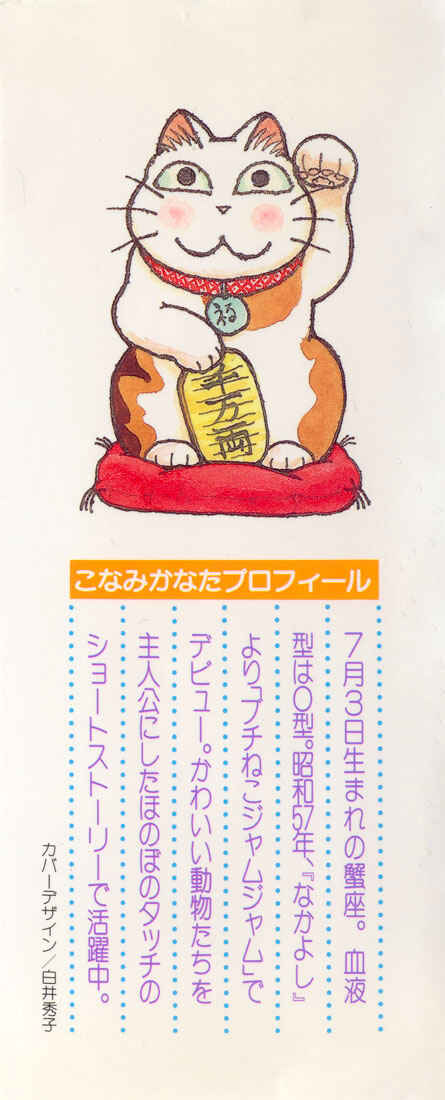 福
千万両
こなみかなたプロフィール
7月3日生まれの蟹座。血液
型はO型。昭和57年、『なかよし』
より「ブチねこジャムジャム」で
デビュー。かわいい動物たちを
主人公にしたほのぼのタッチの
ショートストーリーで活躍中。
カバーデザイン/白井秀子